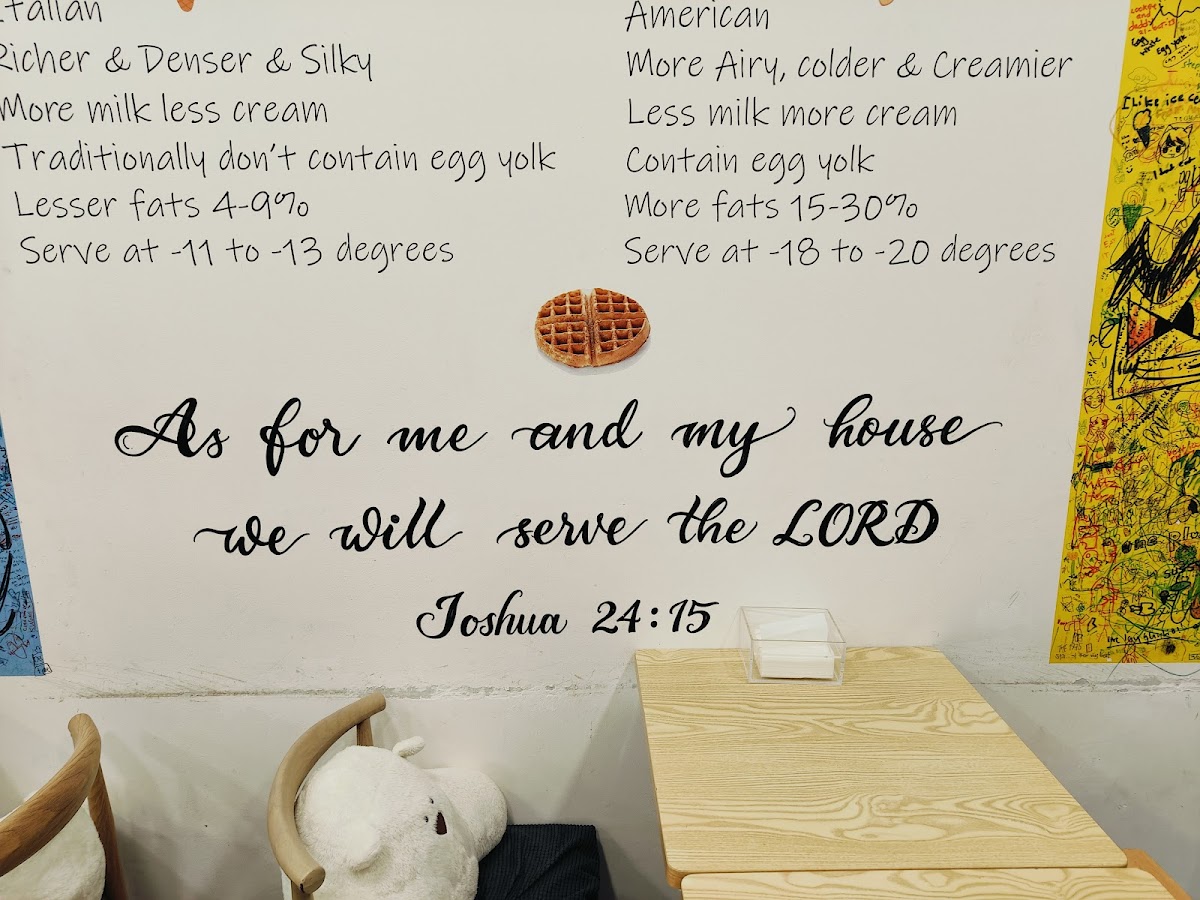 Italian
Richer & Denser & Silky
More milk less cream
Traditionally don't contain egg yolk
Lesser fats 4-9%
Serve at -11 to -13 degrees
American
More Airy, colder & Creamier
Less milk more cream
Contain egg yolk
More fats 15-30%
Serve at -18 to -20 degrees
As for me and my house
we will serve the LORD
Joshua 24:15
I like ice